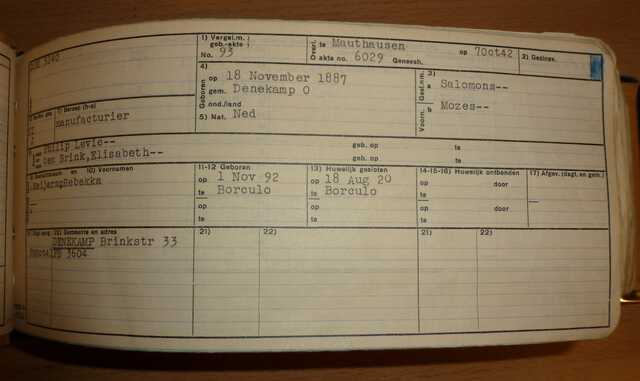 1) Vergel.m.
geb.-akte :
No. 93
Overl. te Mauthausen op 7Oct42
O akte no. 6029 Geneesh.
2) Gezinsv.
3040
4)
Geboren
op 18 November 1887
gem. Denekamp O
ond./land
5) Nat. Ned
3)
Gesl.nm.
Voorn.
a Salomons--
b Mozes--
7) Beroep (h-s)
manufacturier
Philip Levie-- geb. op te
ten Brink,Elisabeth-- geb. op te
10) Voornamen
Meijer Rebekka
11-12 Geboren
op 1 Nov 92
te Borculo
op
te
13) Huwelijk gesloten
op 18 Aug 20
te Borculo
op
te
14-15-16) Huwelijk ontbonden
op door
te
op door
te
17) Afgev. (dagt. en gem.)
Gemeente en adres
DENEKAMP Brinkstr 33
PB 3604
21)
22)
21)
22)